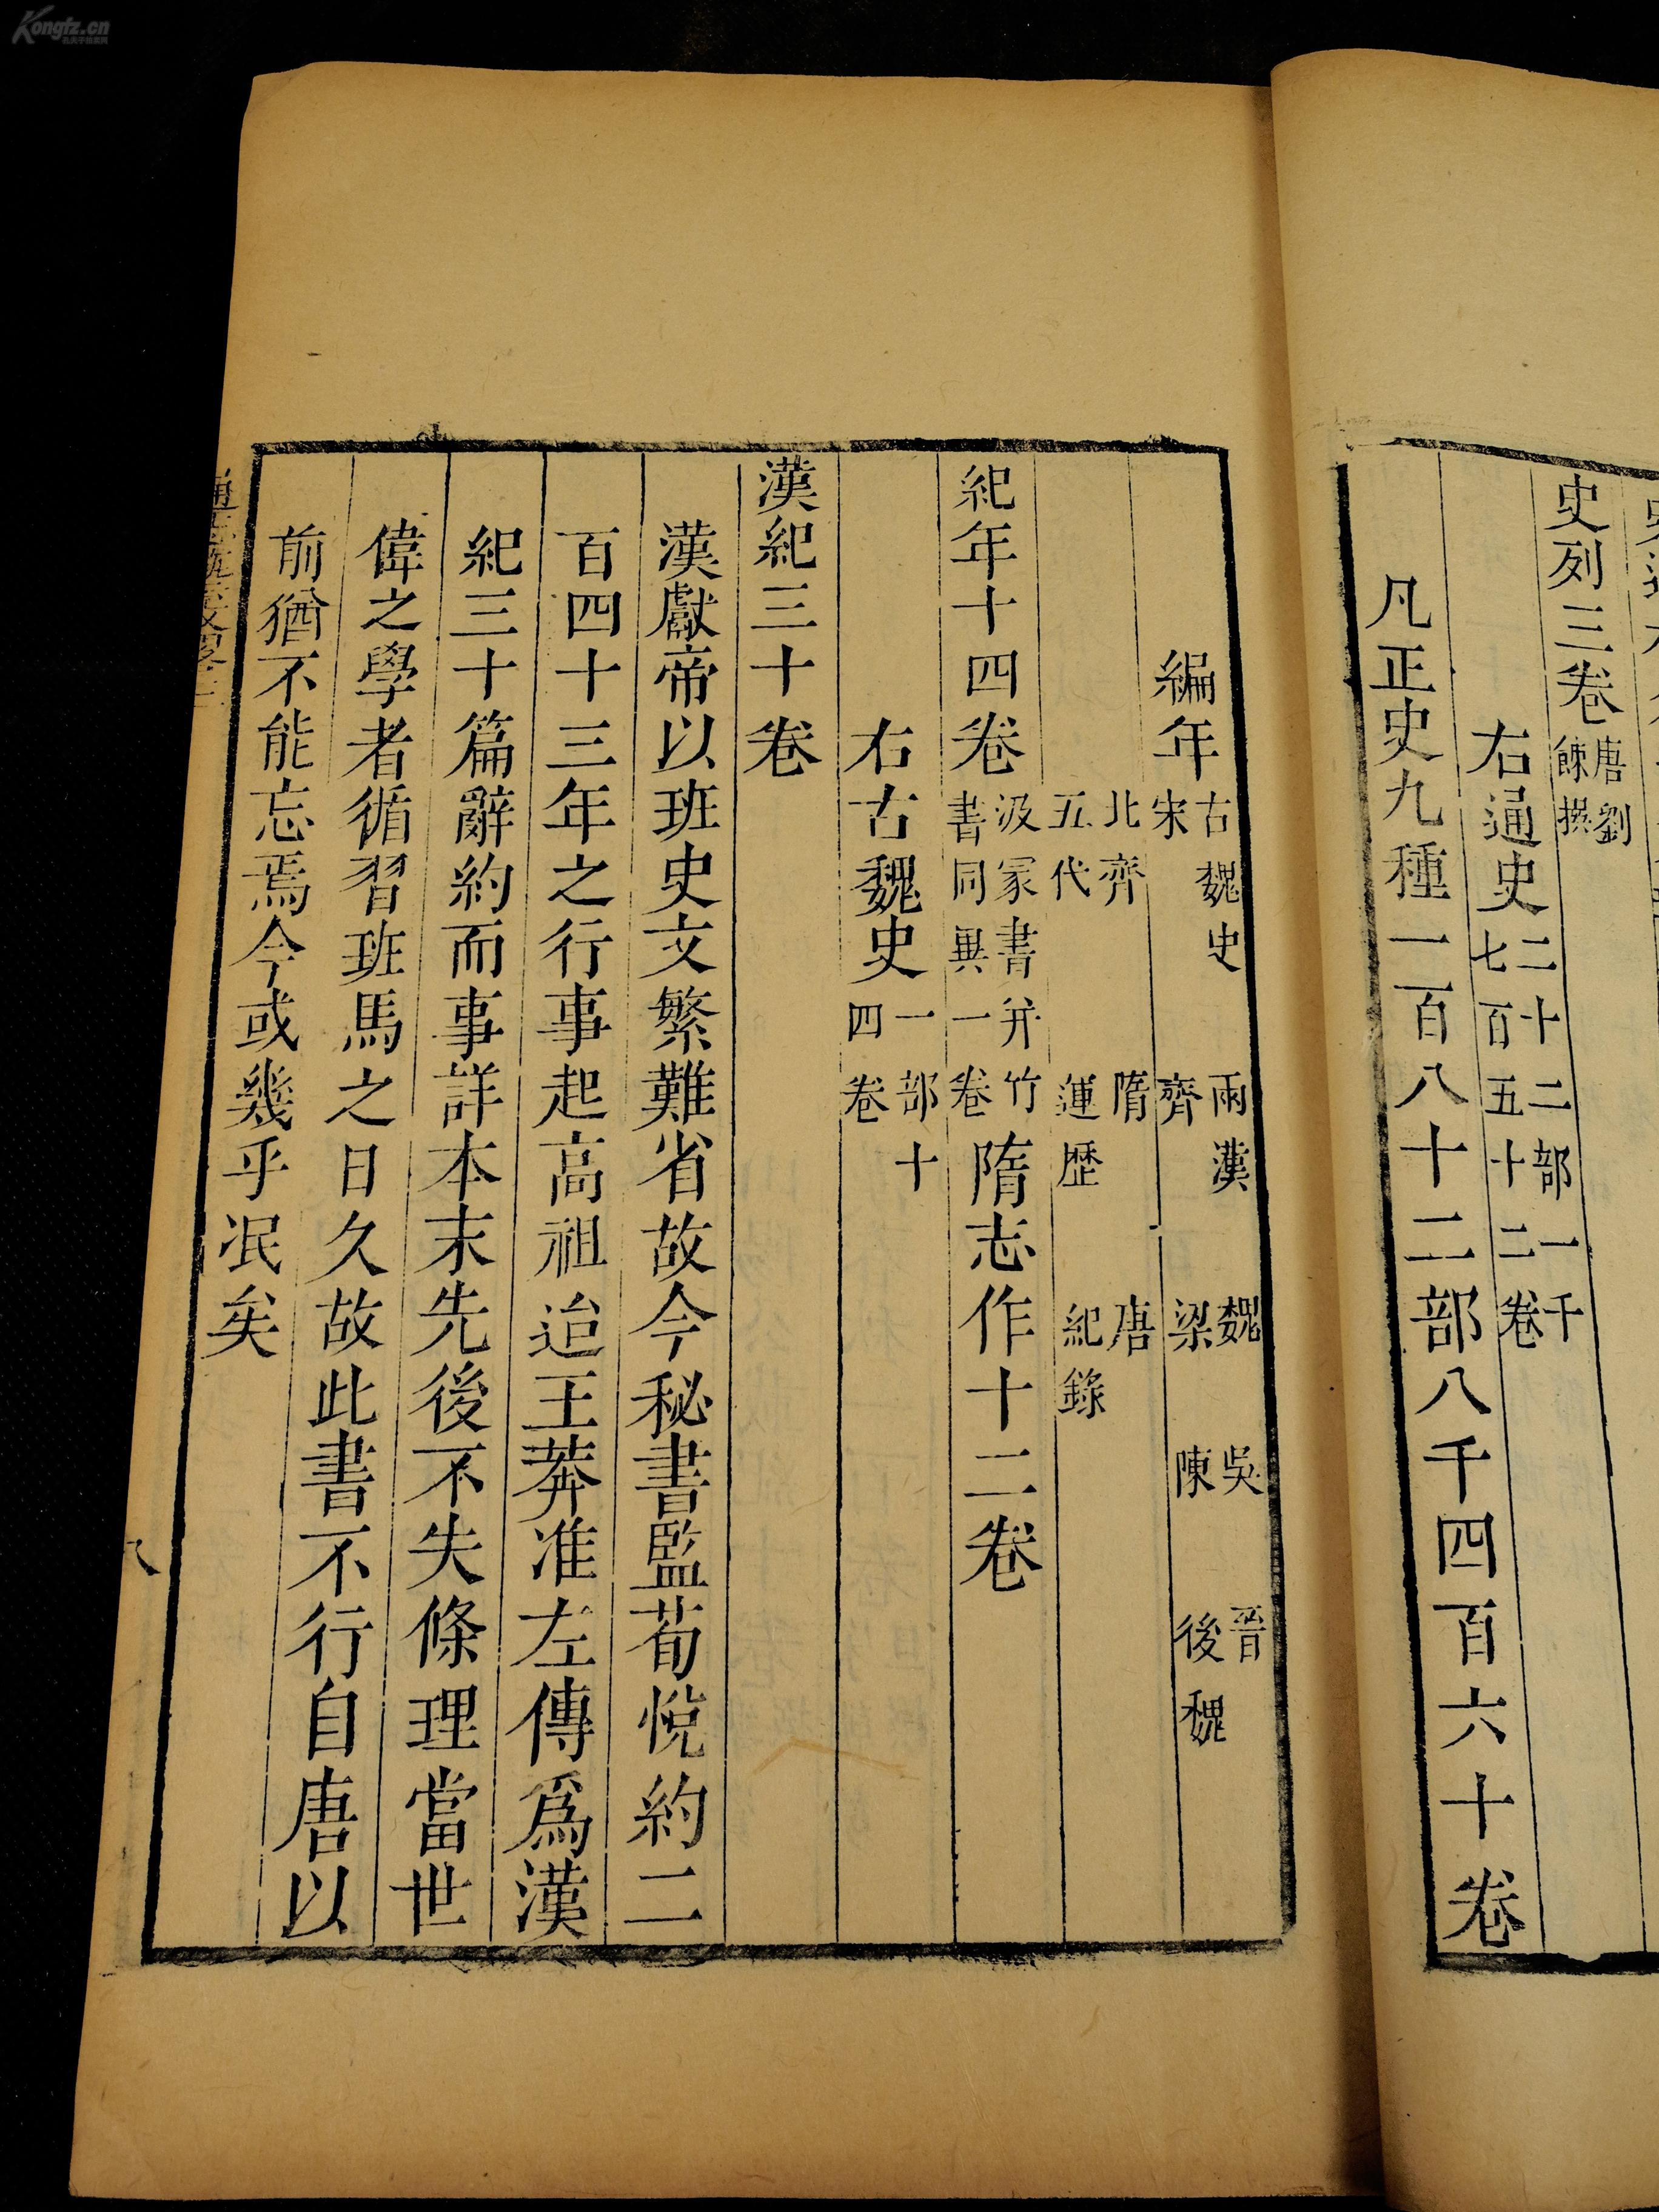 Kongfz.cn
史列三卷唐劉餗撰
右通史二十二部一千七百五十二卷
凡正史九種一百八十二部八千四百六十卷
編年古魏史 兩漢 魏 吳 晉 宋 齊 梁 陳 後魏
北齊 隋 唐 五代 運歷 紀錄
紀年十四卷汲冢書并竹書同異一卷隋志作十二卷
右古魏史一部十四卷
漢紀三十卷
漢獻帝以班史文繁難省故今秘書監荀悅約二
百四十三年之行事起高祖迨王莽准左傳爲漢
紀三十篇辭約而事詳本末先後不失條理當世
偉之學者循習班馬之日久故此書不行自唐以
前猶不能忘焉今或幾乎泯矣